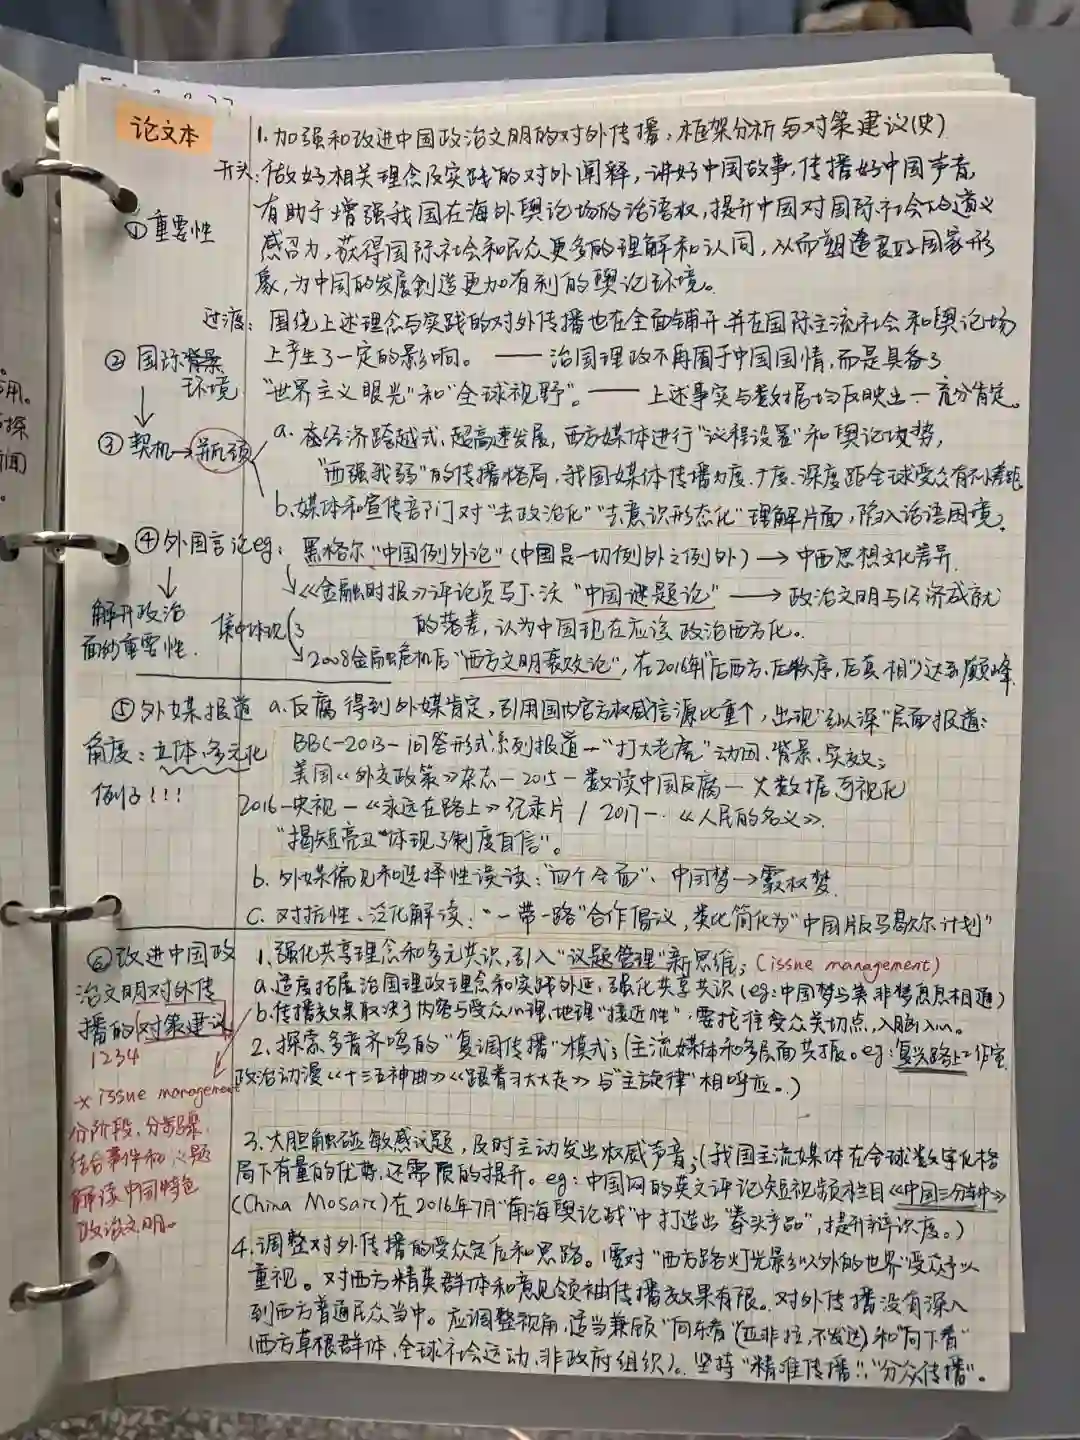 论文本
1.加强和改进中国政治文明的对外传播,框架分析与对策建议(史)
开头:做好相关理念及实践的对外阐释,讲好中国故事,传播好中国声音,
①重要性
有助于增强我国在海外舆论场的话语权,提升中国对国际社会的道义
感召力,获得国际社会和民众更多的理解和认同,从而塑造良好国家形
象,为中国的发展创造更加有利的舆论环境。
过渡:围绕上述理念与实践的对外传播也在全面铺开并在国际主流社会和舆论场
②国际背景
上产生了一定的影响。——治国理政不再囿于中国国情,而是具备了
环境
"世界主义眼光"和"全球视野"。——上述事实与数据均反映出一充分肯定。
③契机→瓶颈
a.在经济跨越式、超高速发展,西方媒体进行"议程设置"和舆论攻势,
"西强我弱"的传播格局,我国媒体传播力度、广度、深度距全球受众有不小差距
b.媒体和宣传部门对"去政治化""去意识形态化"理解片面,陷入话语困境。
④外国言论eg:黑格尔"中国例外论"(中国是一切例外之例外)→中西思想文化差异.
《金融时报》评论员马丁·沃"中国谜题论"→政治文明与经济成就
解开政治
面纱重要性.
集中体现
的落差,认为中国现在应该政治西方化。
2008金融危机后"西方文明衰败论",在2016年("后西方、后秩序,后真相")达到巅峰.
⑤外媒报道
a.反腐得到外媒肯定,引用国内官方权威信源比重个,出现"纵深"层面报道:
角度:立体、多元化
BBC-2013-问答形式系列报道-"打大老虎"动因、背景、实效;
例子!!!
美国《外交政策》杂志-2015-数读中国反腐-大数据可视化
2016-央视-《永远在路上》纪录片/2017-.《人民的名义》.
"揭短亮丑"体现了制度自信"。
b.外媒偏见和选择性误读:"四个全面"、中国梦→霸权梦.
c.对抗性、泛化解读:"一带一路"合作倡议,类比简化为"中国版马歇尔计划"
⑥改进中国政
治文明对外传
播的对策建议
1234
1.强化共享理念和多元共识,引入"议题管理"新思维;(issue management)
a.适度拓展治国理政理念和实践外延,强化共享共识(eg:中国梦与美非梦息息相通)
b.传播效果取决于内容与受众心理,地理"接近性",要抓住受众关切点,入脑入心。
2.探索多音齐鸣的"复调传播"模式;(主流媒体和多层面共振。eg:复兴路上工作室
政治动漫《十三五神曲》《跟着习大大走》与"主旋律"相呼应。)
* issue management
分阶段、分步骤,
结合事件和议题
解读中国特色
政治文明。
3.大胆触碰敏感议题,及时主动发出权威声音;(我国主流媒体在全球数字化格
局下有量的优势,还需质的提升。eg:中国网的英文评论短视频栏目《中国三分钟》
(China Mosaic)在2016年7月"南海舆论战"中打造出"拳头产品",提升辩识度。)
4.调整对外传播的受众定位和思路。(要对"西方路灯光影以外的世界"受众予以
重视。对西方精英群体和意见领袖传播效果有限。对外传播没有深入
到西方普通民众当中。应调整视角,适当兼顾"向东看"(亚非拉,不发达)和"向下看"
(西方草根群体,全球社会运动、非政府组织)。坚持"精准传播"!"分众传播"。